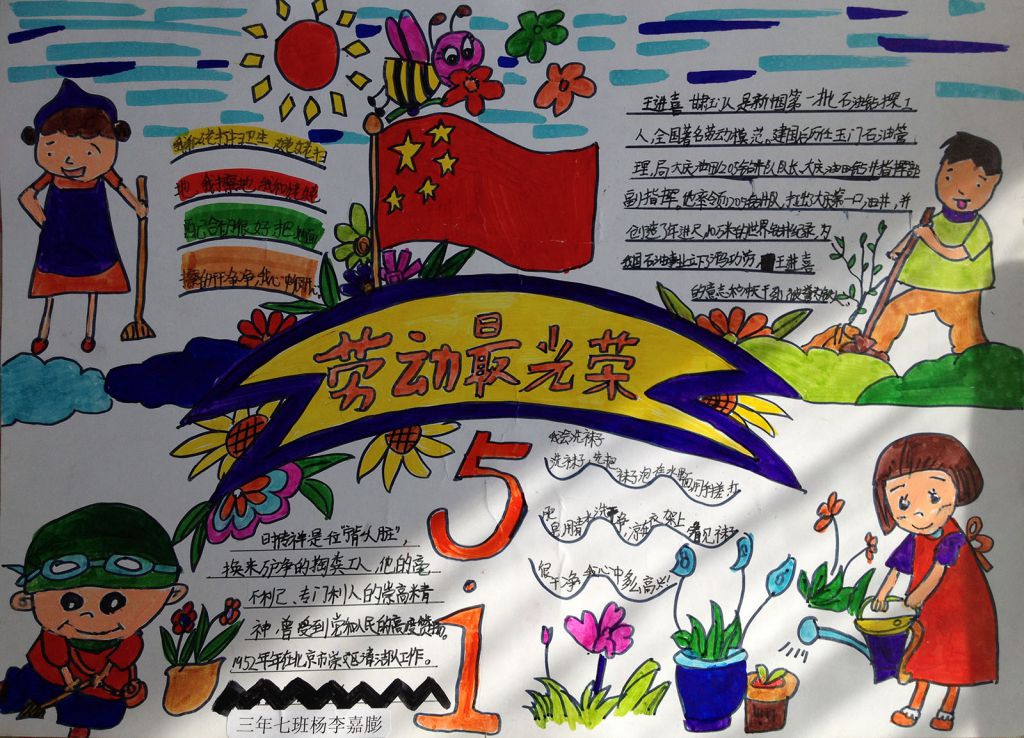 我和姥姥打扫卫生 姥姥扫
地,我擦地,我和姥姥
配合的很好,把地面
擦的干干净净,我心
王进喜 甘肃玉门人 是新中国第一批石油钻探工
人,全国著名劳动模范。建国后历任玉门石油管
理局 大庆油田1205钻井队队长、大庆油田钻井指挥部
副指挥。他率领1205钻井队,打出大庆第一口油井,并
创造了年进尺10万米的世界钻井纪录 为
我国石油事业立下汗马功劳 王进喜
的意志
劳动最光荣
5
1
我会洗袜子
洗袜子,先把
袜子泡在水里面用手搓,打
肥
皂,用清水洗干净,凉在衣架上
看见袜子
很干净,我心中多么高兴!
时传祥是一位“背头脏”,
换来万户净的掏粪工人,他的毫
不利己、专门利人的崇高精
神,曾受到党和人民的高度赞扬。
1952年在北京市崇文区清洁队工作。
三年七班杨李嘉膨